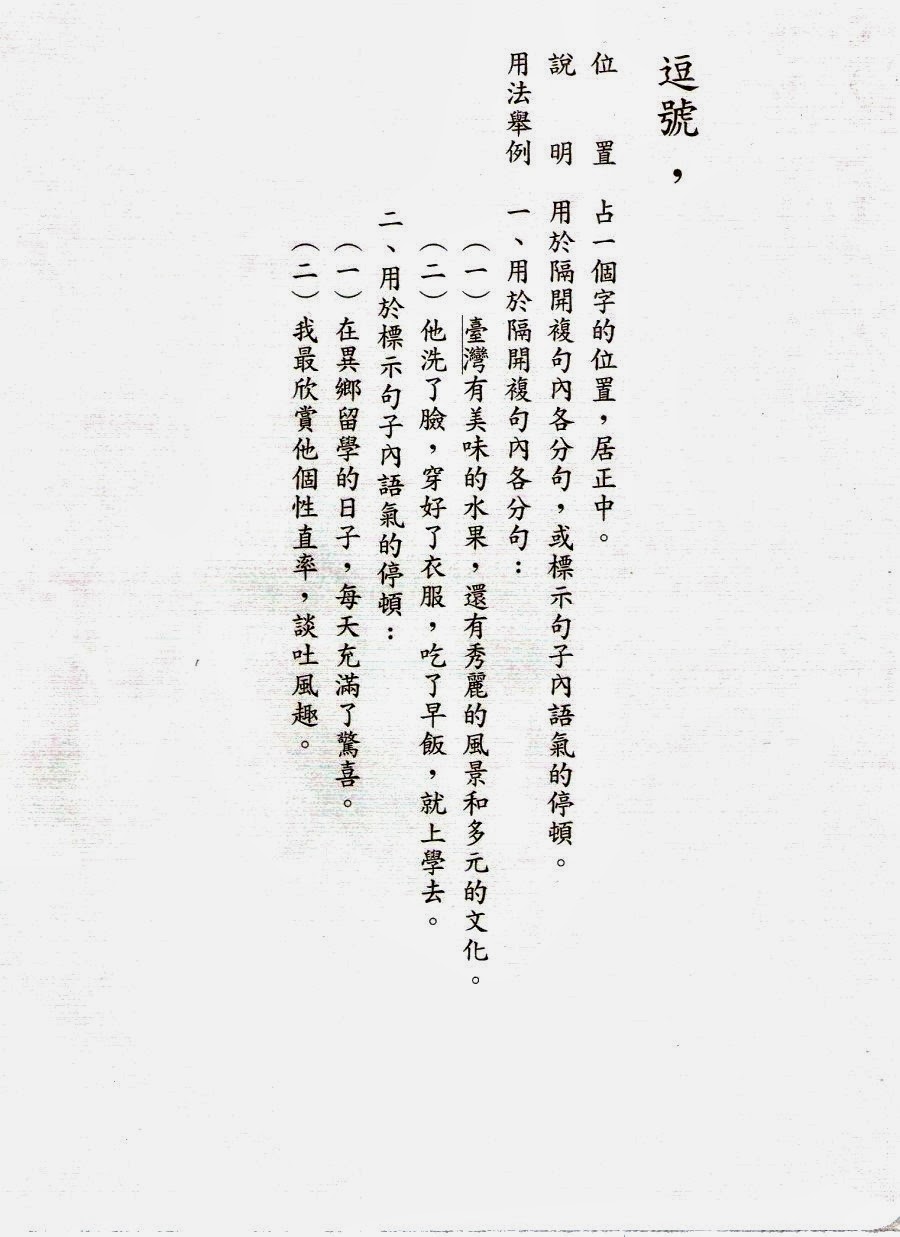 逗號，
位置　占一個字的位置，居正中。
說明　用於隔開複句內各分句，或標示句子內語氣的停頓。
用法舉例　一、用於隔開複句內各分句：
（一）臺灣有美味的水果，還有秀麗的風景和多元的文化。
（二）他洗了臉，穿好了衣服，吃了早飯，就上學去。
二、用於標示句子內語氣的停頓：
（一）在異鄉留學的日子，每天充滿了驚喜。
（二）我最欣賞他個性直率，談吐風趣。